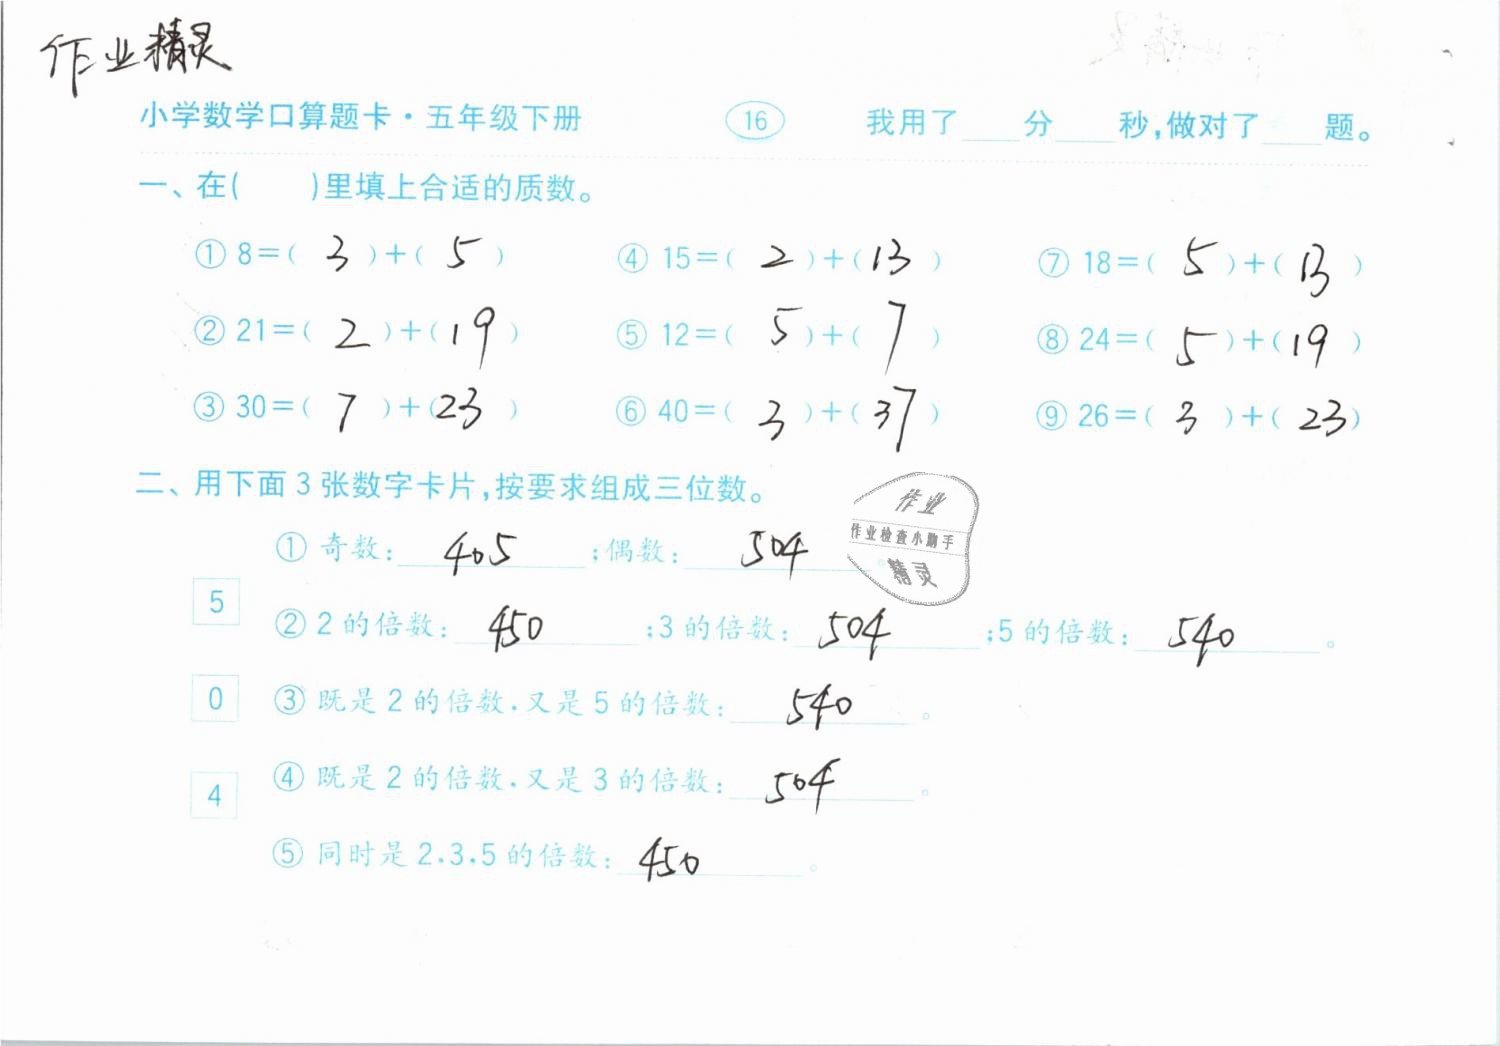 作业精灵
小学数学口算题卡·五年级下册 16 我用了____分____秒,做对了____题。
一、在( )里填上合适的质数。
① 8=( 3 )+( 5 ) ④ 15=( 2 )+( 13 ) ⑦ 18=( 5 )+( 13 )
② 21=( 2 )+( 19 ) ⑤ 12=( 5 )+( 7 ) ⑧ 24=( 5 )+( 19 )
③ 30=( 7 )+( 23 ) ⑥ 40=( 3 )+( 37 ) ⑨ 26=( 3 )+( 23 )
二、用下面 3 张数字卡片,按要求组成三位数。
作业
作业检查小助手
精灵
① 奇数: 405 ;偶数: 504
5
② 2 的倍数: 450 ;3 的倍数: 504 ;5 的倍数: 540 。
0
③ 既是 2 的倍数,又是 5 的倍数: 540 。
4
④ 既是 2 的倍数,又是 3 的倍数: 504 。
⑤ 同时是 2、3、5 的倍数: 450 。